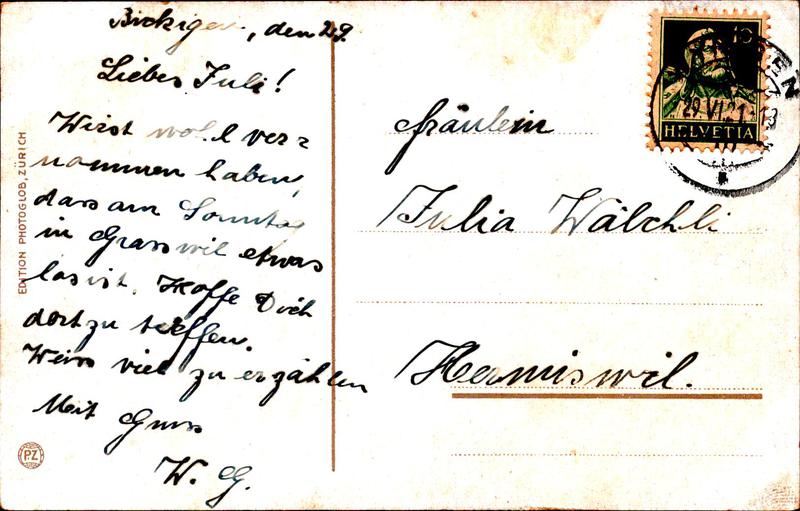 Bickigen, den 29.
Liebes Juli!
Wirst wohl ver=
nommen haben,
dass am Sonntag
in Grasswil etwas
los ist. Hoffe Dich
dort zu treffen.
Weiss viel zu erzählen
Mit Gruss
W. G.
Fräulein
Julia Wälchli
Hermiswil.
EDITION PHOTOGLOB, ZÜRICH
PZ
10
HELVETIA
29.VI.21